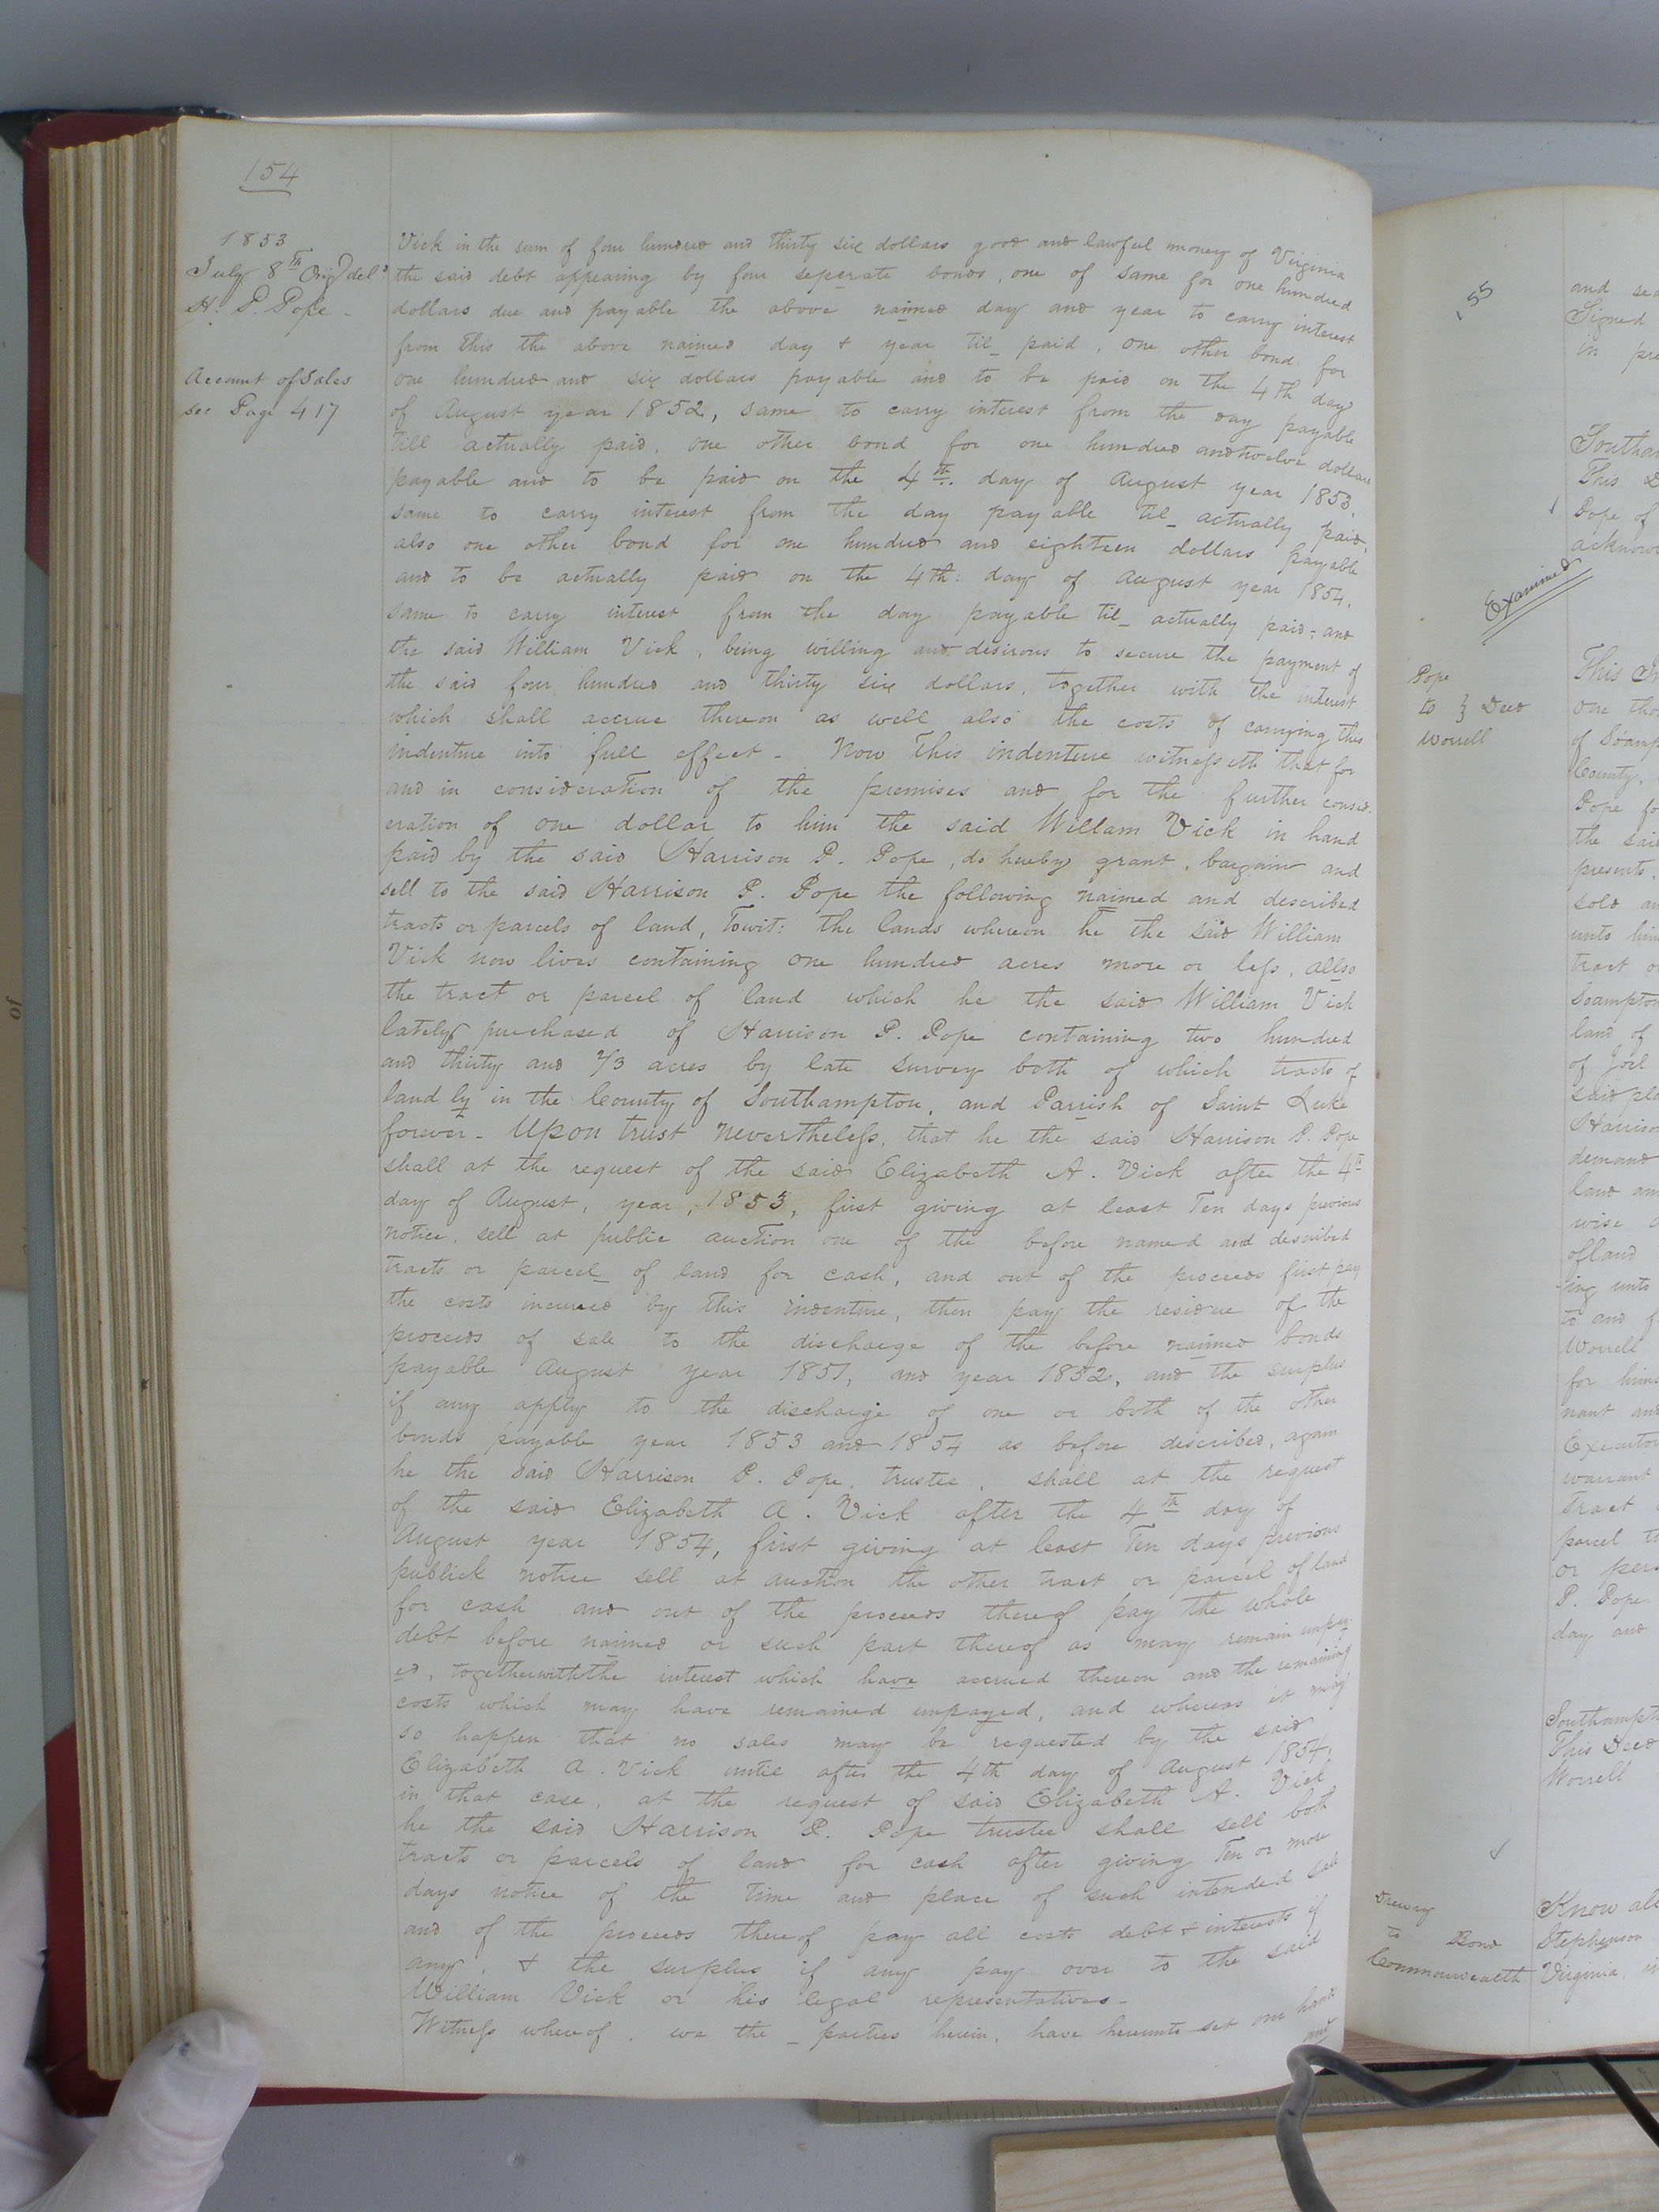 154
1853
July 8th Orig del'd
H. P. Pope -
Account of Sales
see Page 417
Vick in the sum of four hundred and thirty six dollars good and lawful money of Virginia
the said debt appearing by four seperate bonds, one of same for one hundred
dollars due and payable the above naimed day and year to carry interest
from this the above naimed day & year til paid, one other bond for
one hundred and six dollars payable and to be paid on the 4th day
of August year 1852, same to carry interest from the day payable
till actually paid, one other bond for one hundred and twelve dollars
payable and to be paid on the 4th. day of August year 1853,
same to carry interest from the day payable til actually paid,
also one other bond for one hundred and eighteen dollars payable
and to be actually paid on the 4th: day of August year 1854,
same to carry interest from the day payable til actually paid; and
the said William Vick, being willing and desirous to secure the payment of
the said four hundred and thirty six dollars, together with the interest
which shall accrue thereon as well also the costs of carrying this
indenture into full effect - Now This indenture witnesseth that for
and in consideration of the premises and for the further consid-
eration of one dollar to him the said Willam Vick in hand
paid by the said Harrison P. Pope, do hereby grant, bargain and
sell to the said Harrison P. Pope the following naimed and described
tracts or parcels of land, Towit: the lands whereon he the said William
Vick now lives containing one hundred acres more or less, allso
the tract or parcel of land which he the said William Vick
lately purchased of Harrison P. Pope containing two hundred
and thirty and 2/3 acres by late survey both of which tracts of
land ly in the County of Southampton, and Parrish of Saint Luke
forever - Upon trust nevertheless, that he the said Harrison P. Pope
shall at the request of the said Elizabeth A. Vick after the 4th
day of August, year, 1853, first giving at least Ten days previous
notice, sell at public auction one of the before named and described
tracts or parcel of land for cash, and out of the proceeds first pay
the costs incurred by this indenture, then pay the residue of the
proceeds of sale to the discharge of the before naimed bonds
payable August year 1851, and year 1852, and the surplus
if any apply to the discharge of one or both of the other
bonds payable year 1853 and 1854 as before described, again
he the said Harrison P. Pope, trustee, shall at the request
of the said Elizabeth A. Vick after the 4th day of
August year 1854, first giving at least Ten days previous
publick notice sell at auction the other tract or parcel of land
for cash and out of the proceeds thereof pay the whole
debt before naimed or such part thereof as may remain unpay-
ed, together with the interest which have accrued thereon and the remaining
costs which may have remained unpayed, and whereas it may
so happen that no sales may be requested by the said
Elizabeth A. Vick untie after the 4th day of August 1854,
in that case, at the request of said Elizabeth A. Vick
he the said Harrison P. Pope trustee shall sell both
tracts or parcels of land for cash after giving Ten or more
days notice of the time and place of such intended sale
and of the proceeds thereof pay all costs debt & interests if
any, & the surplus if any pay over to the said
William Vick or his legal representatives -
Witness whereof, we the parties herein, have hereunto set our hand
and
155
Examined
Pope
to } Deed
Worrell
Drewry
to Bond
Commonwealth
and
Signed
in
This
Pope of
This
of
County,
Pope
the
presents,
sold
unto
tract
land of
of Joel
demand
land
wise
of land
ing unto
to and
Worrell
for
nant and
warrant
Tract
parcel
or
P. Pope
day and
This Deed
Worrell
Know all
Stephenson
Virginia,